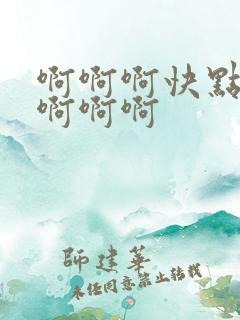 啊啊啊快點
啊啊啊
師建華
未经同意禁止转载